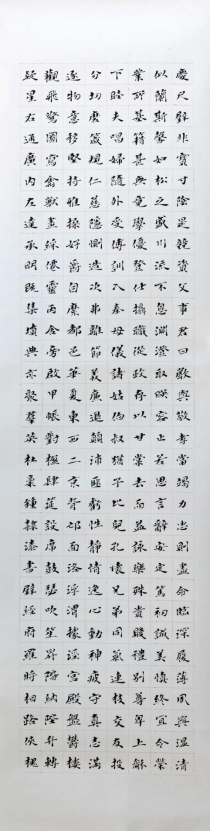 慶尺璧非寶寸陰是競資父事君曰嚴與敬孝當竭力忠則盡命臨深履薄夙興溫凊
似蘭斯馨如松之盛川流不息淵澄取暎容止若思言辭安定篤初誠美慎終宜令榮
業所基籍甚無竟學優登仕攝職從政存以甘棠去而益詠樂殊貴賤禮別尊卑上龢
下睦夫唱婦隨外受傅訓入奉母儀諸姑伯叔猶子比兒孔懷兄弟同氣連枝交友投
分切磨箴規仁慈隱惻造次弗離節義廉退顛沛匪虧性靜情逸心動神疲守真志滿
逐物意移堅持雅操好爵自縻都邑華夏東西二京背邙面洛浮渭據涇宮殿盤鬱樓
觀飛驚圖寫禽獸畫綵僊靈丙舍傍啟甲帳對楹肆筵設席鼓瑟吹笙升階納陛弁轉
疑星右通廣內左達承明既集墳典亦聚羣英杜稾鍾隸漆書壁經府羅將相路俠槐